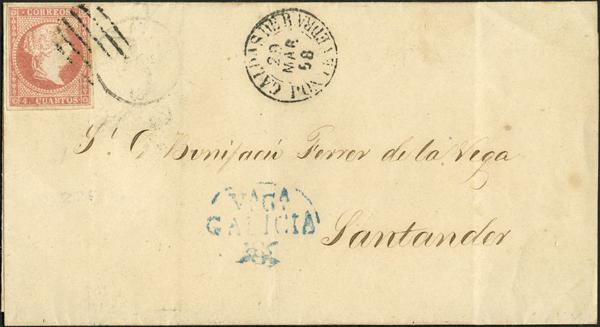 CORREOS
4. CUARTOS
CALDAS DE R. PONTEVEDRA
29
MAR
58
Sr. D. Bonifacio Ferrer de la Vega
VIGO
GALICIA
Santander